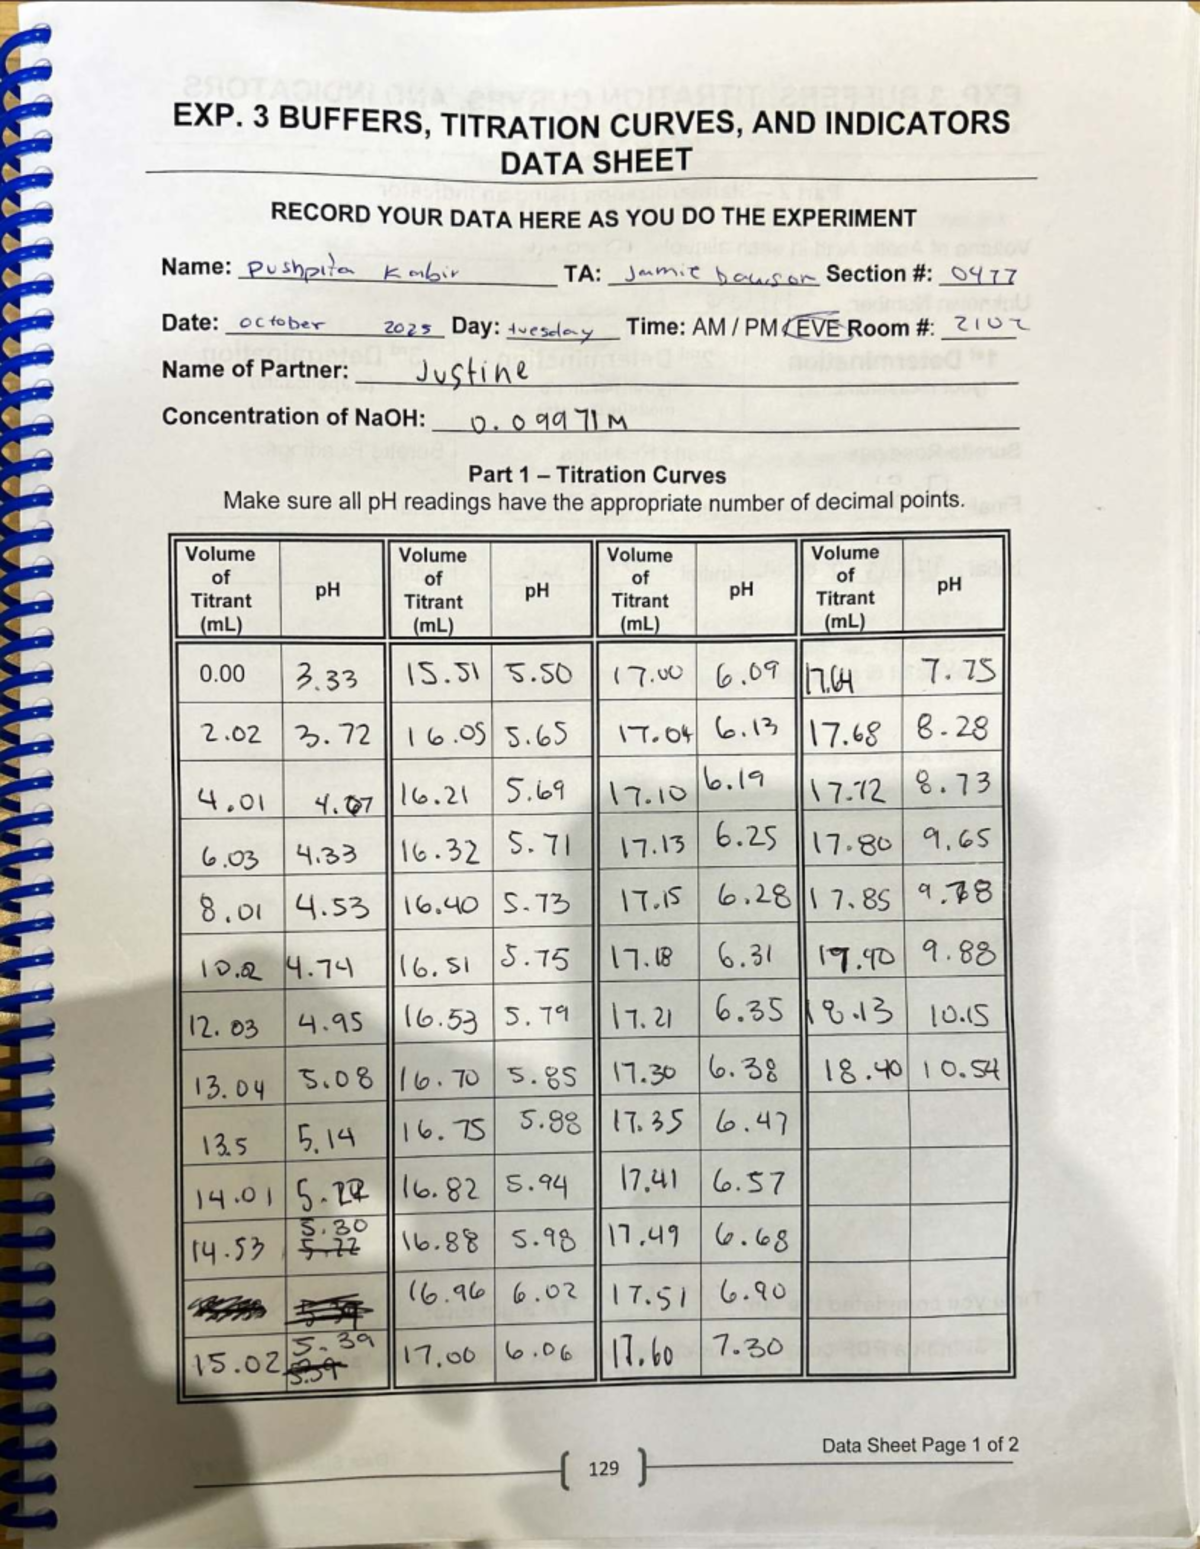 EXP. 3 BUFFERS, TITRATION CURVES, AND INDICATORS
DATA SHEET
RECORD YOUR DATA HERE AS YOU DO THE EXPERIMENT
Name: Pushpita Kabir TA: Jamie Dawson Section #: 0477
Date: october 2025 Day: tuesday Time: AM / PM / EVE Room #: 2102
Name of Partner: Justine
Concentration of NaOH: 0.09971 M
Part 1 – Titration Curves
Make sure all pH readings have the appropriate number of decimal points.
Volume of Titrant (mL) pH Volume of Titrant (mL) pH Volume of Titrant (mL) pH Volume of Titrant (mL) pH
0.00 3.33 15.51 5.50 17.00 6.09 17.64 7.75
2.02 3.72 16.05 5.65 17.04 6.13 17.68 8.28
4.01 4.07 16.21 5.69 17.10 6.19 17.72 8.73
6.03 4.33 16.32 5.71 17.13 6.25 17.80 9.65
8.01 4.53 16.40 5.73 17.15 6.28 17.85
4.74 16.51 5.75 17.18 6.31 9.88
12.03 4.95 16.53 5.79 17.21 6.35 18.13 10.15
13.04 5.08 16.70 5.85 17.30 6.38 18.40 10.54
13.5 5.14 16.75 5.88 17.35 6.47
14.01 16.82 5.94 17.41 6.57
14.53 5.30 16.88 5.98 17.49 6.68
16.96 6.02 17.51 6.90
15.02 5.39 17.00 6.06 17.60 7.30
Data Sheet Page 1 of 2
129